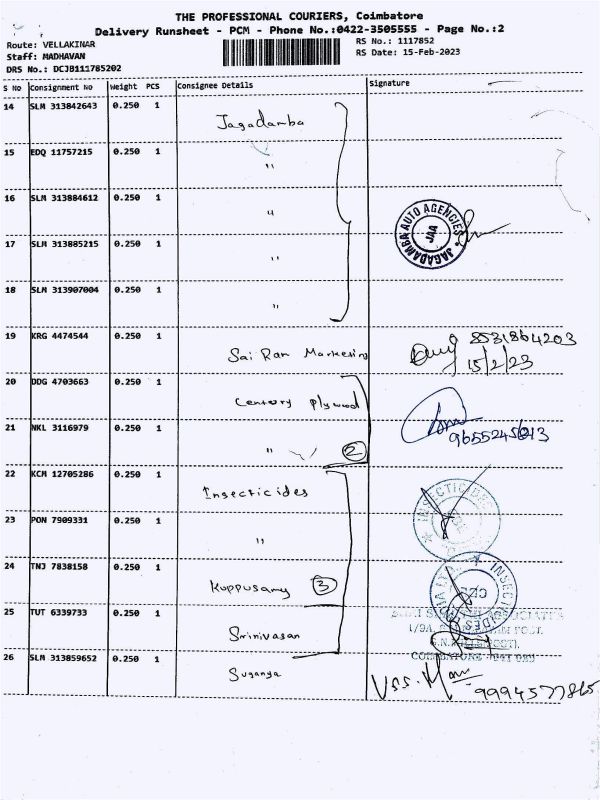 THE PROFESSIONAL COURIERS, Coimbatore
Delivery Runsheet - PCM - Phone No.:0422-3505555 - Page No.:2
Route: VELLAKINAR
RS No.: 1117852
Staff: MADHAVAN
RS Date: 15-Feb-2023
DRS No.: DCJB111785202
S No Consignment No Weight PCS Consignee Details Signature
14 SLM 313842643 0.250 1 Jagadamba
15 EDQ 11757215 0.250 1 "
16 SLM 313884612 0.250 1 "
JAGADAMBA AUTO AGENCIES
JAA
17 SLM 313885215 0.250 1 "
18 SLM 313907004 0.250 1 "
19 KRG 4474544 0.250 1 Sai Ram Marketing 8531864203
15/2/23
20 DDG 4703663 0.250 1 Century plywood
21 NKL 3116979 0.250 1 " 2
22 KCM 12705286 0.250 1 Insecticides
23 PON 7909331 0.250 1 "
24 TNJ 7838158 0.250 1 Kuppusamy 3
25 TUT 6339733 0.250 1 Srinivasan
26 SLM 313859652 0.250 1 Suganya 9994577865